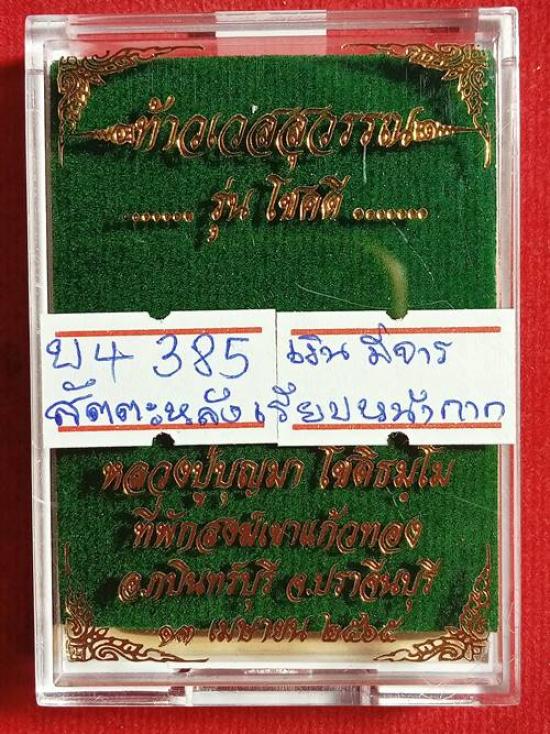 ท้าวเวสสุวรรณ
....... รุ่น โชคดี .......
บ4 385 เงิน มีจาร
สัตตะหลังเรียบหน้ากาก
หลวงปู่บุญมา โชติธมฺโม
ที่พักสงฆ์เขาแก้วทอง
อ.กบินทร์บุรี จ.ปราจีนบุรี
๑๓ เมษายน ๒๕๖๕